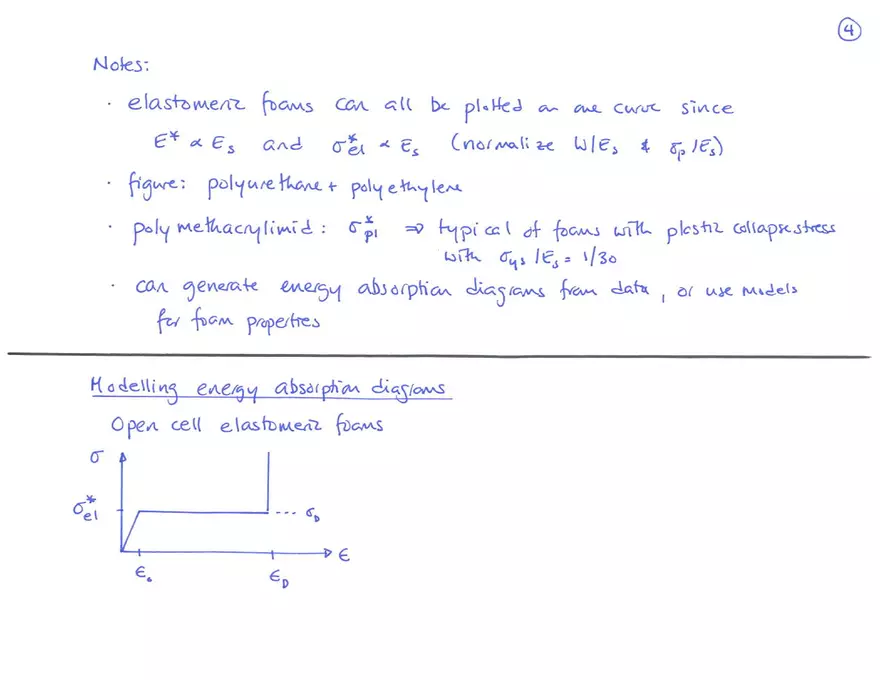 ④
Notes:
· elastomeric foams can all be plotted on one curve since
E* ∝ Es and σ*el ∝ Es (normalize W/Es & σp/Es)
· figure: polyurethane + polyethylene
· polymethacrylimid: σ*pl ⇒ typical of foams with plastic collapse stress
with σys/Es = 1/30
· can generate energy absorption diagrams from data, or use models
for foam properties
Modelling energy absorption diagrams
Open cell elastomeric foams
σ
σ*el
--- σD
ε
ε₀ εD